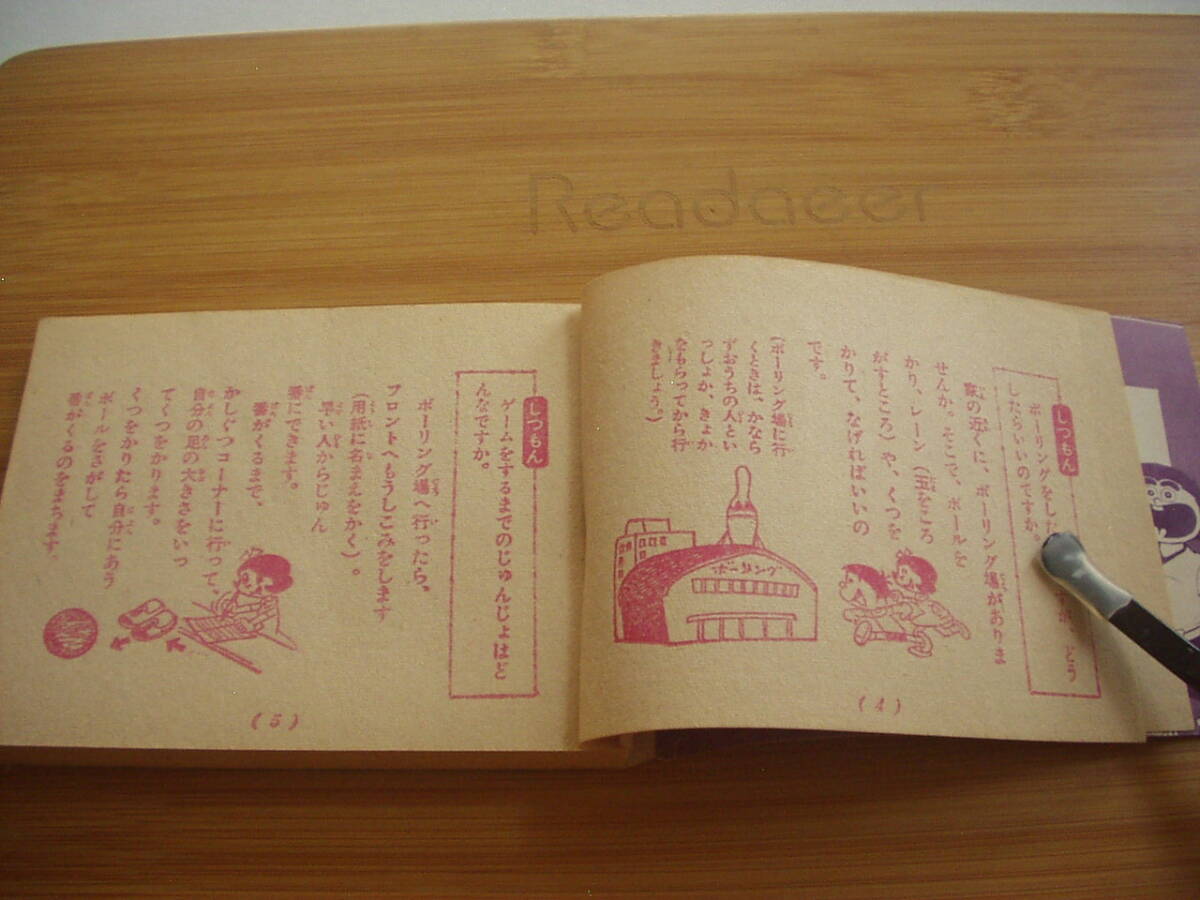 Readaeer
しつもん
ボーリングをした
どう
したらいいのですか。
駅の近くに、ボーリング場がありま
せんか。そこで、ボールを
かり、レーン（玉をころ
がすところ）や、くつを
かりて、なげればいいの
です。
（ボーリング場に行
くときは、かなら
ずおうちの人とい
っしょか、きょか
をもらってから行
きましょう。）
ボーリング
(4)
しつもん
ゲームをするまでのじゅんじょはど
んなですか。
ボーリング場へ行ったら、
フロントへもうしこみをします
（用紙に名まえをかく）。
早い人からじゅん
番にできます。
番がくるまで、
かしぐつコーナーに行って、
自分の足の大きさをいっ
てくつをかります。
くつをかりたら自分にあう
ボールをさがして
番がくるのをまちます。
(5)